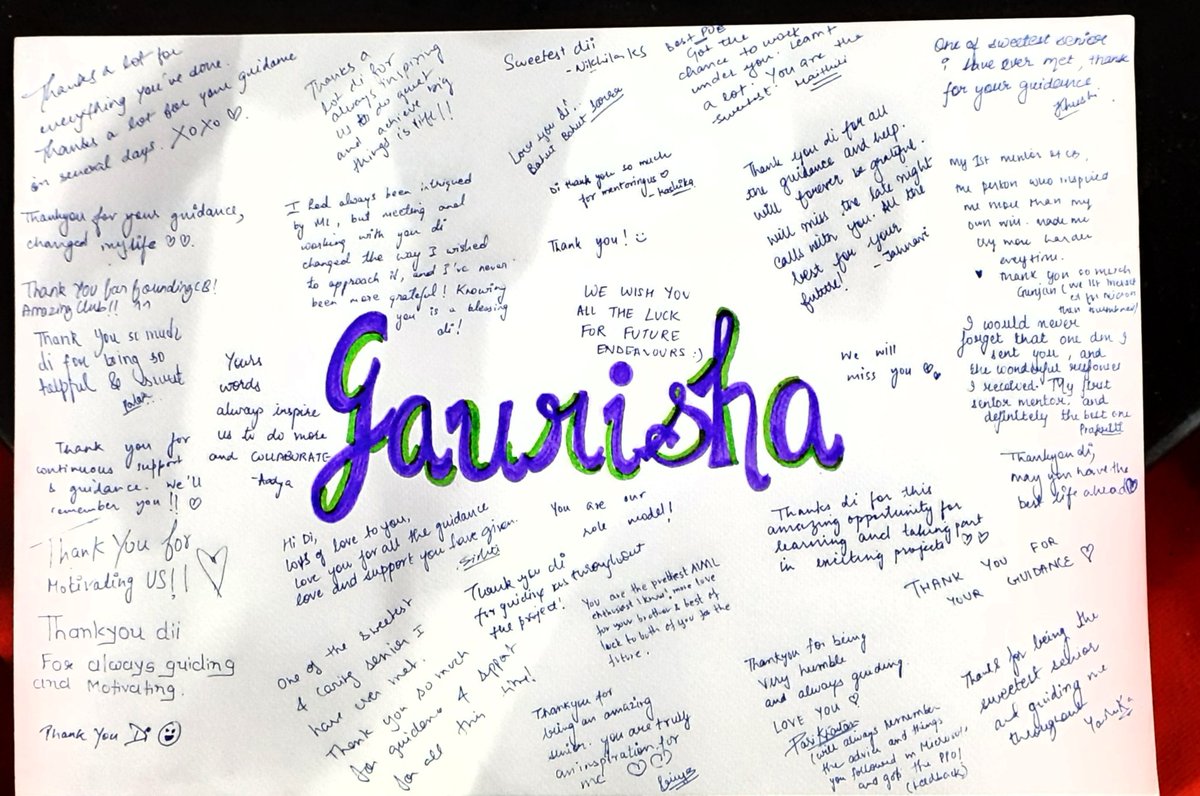 Thanks a lot for
everything you've done.
Thanks a lot for your guidance
in several days. XOXO ♡
Thanks a
lot di for
always inspiring
us to do quiet
and achieve big
things in life!!
Sweetest dii
-Nikhilanks
Love you di..
Bahut Bahut
Best POE
Got the
chance to work
under you. Learnt
a lot. You are the
sweetest.
One of sweetest senior
i have ever met, thank
for your guidance
Khushi
Thankyou for your guidance,
changed my life ♡♡.
I had always been intrigued
by ML, but meeting and
working with you di
changed the way I wished
to approach it, and I've never
been more grateful! Knowing
you is a blessing
di!
Di thank you so much
for mentoring us ♡
-Kashika
Thank you! ☺
Thank you di for all
the guidance and help.
will forever be grateful.
will miss the late night
calls with you. All the
best for your
future!
-Jahnavi
My 1st mentor at CB,
the person who inspired
me more than my
own will. made me
try more harder
everytime.
♥ thank you so much
Gunjan
Thank You for founding CB!
Amazing Club!! ^^
Thank You so much
di for being so
helpful & sweet
Palak
WE WISH YOU
ALL THE LUCK
FOR FUTURE
ENDEAVOURS :)
Yours
words
always inspire
us to do more
and COLLABORATE
-Aadya
Gaurisha
We will
miss you ♡♡
I would never
forget that one dm I
sent you, and
the wonderful response
I received. My first
senior mentor and
definitely the best one
Thank you for
continuous support
& guidance. We'll
remember you !! ♡
Thankyou di,
may you have the
best life ahead ♡
Thank You for
Motivating US!! ♡
Hi Di,
lots of love to you,
love you for all the guidance
love and support you have given.
You are our
role model!
Thanks di for this
amazing opportunity for
learning and taking part
in exciting projects ♡♡
THANK YOU FOR
YOUR GUIDANCE ♡
Thankyou di
for guiding us throughout
the project!
You are the prettiest AI/ML
enthusiast I know! more love
for your brother & best of
luck to both of you for the
future.
Thankyou dii
For always guiding
and Motivating.
Thank You Di ☺
One of the sweetest
& caring senior I
have ever met.
Thank you so much
for guidance & support
for all this
time!
Thankyou for
being an amazing
senior. you are truly
an inspiration for
me ♡♡
Riya
Thankyou for being
very humble
and always guiding.
LOVE YOU ♡
(will always remember
the advice and things
you followed in Microsoft
and got the PPO!
(feedback)
Thanks for being the
sweetest senior
and guiding me
throughout